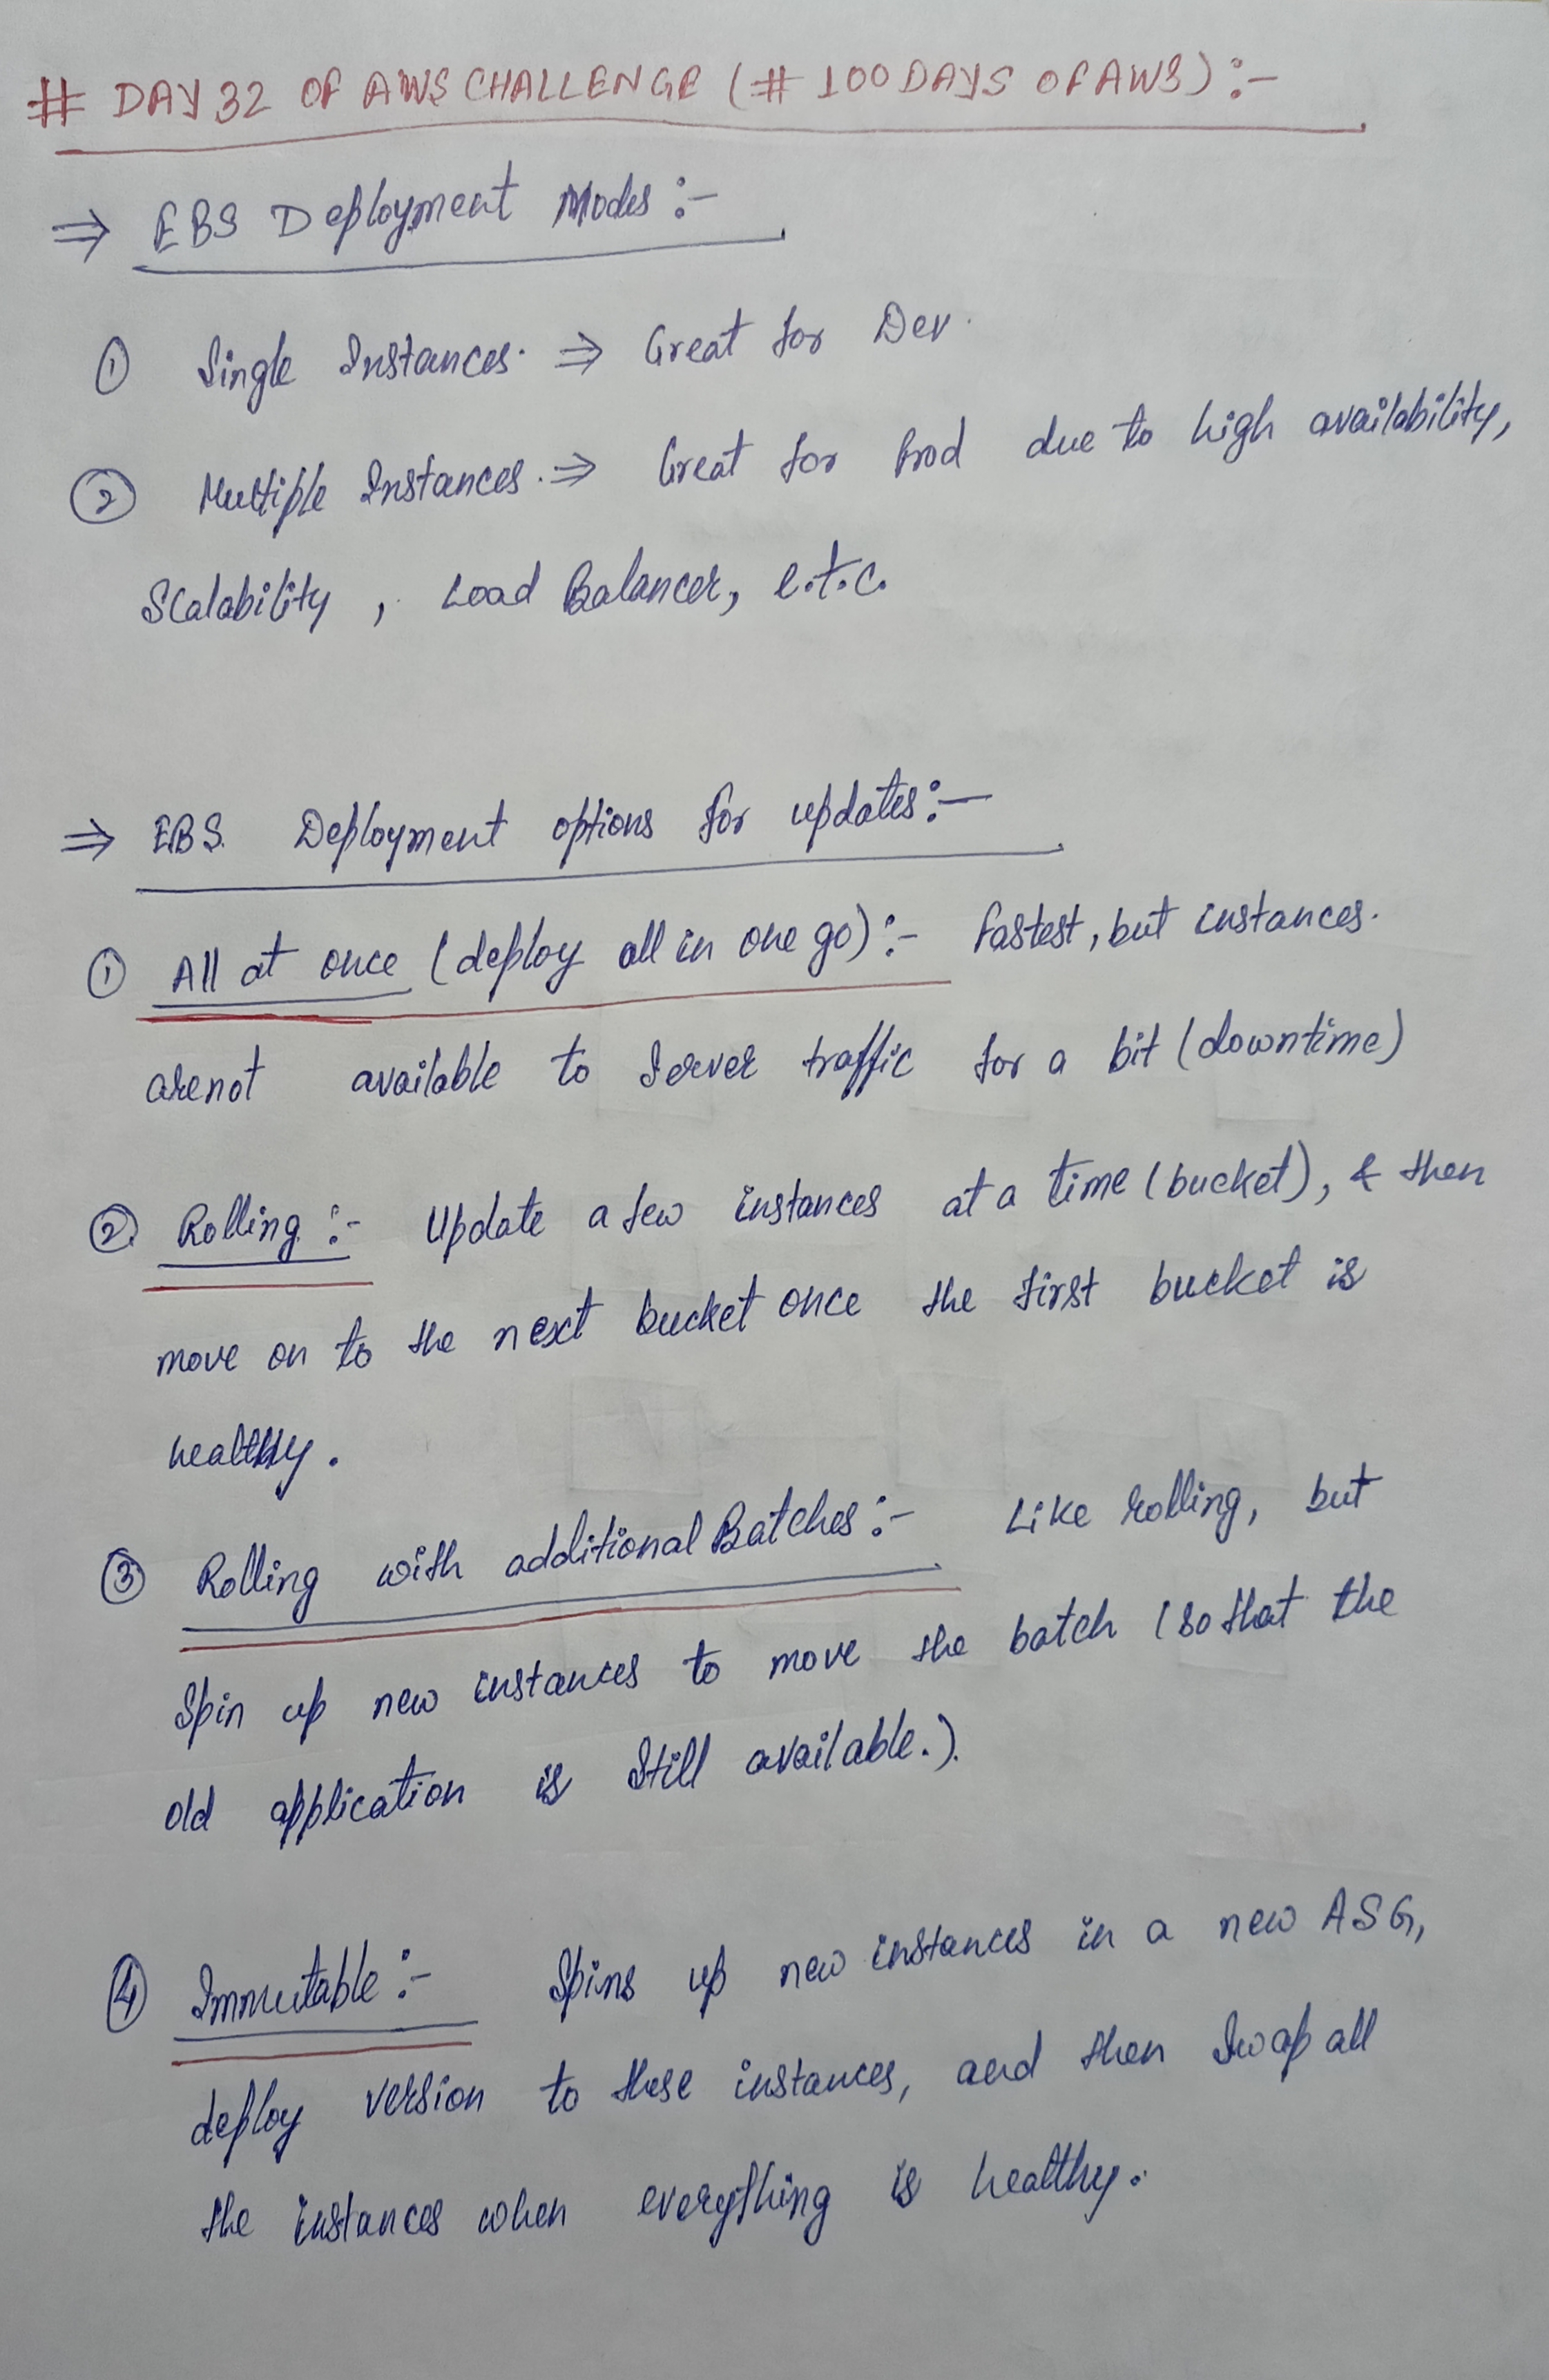 # DAY 32 OF AWS CHALLENGE (# 100DAYS OF AWS) :-
⇒ EBS Deployment Modes :-
① Single Instances. ⇒ Great for Dev.
② Multiple Instances. ⇒ Great for Prod due to high availability,
Scalability, Load Balancer, e.t.c.
⇒ EBS. Deployment options for updates :-
① All at once (deploy all in one go) :- fastest, but instances.
are not available to Server traffic for a bit (downtime)
② Rolling :- Update a few instances at a time (bucket), & then
move on to the next bucket once the first bucket is
healthy.
③ Rolling with additional Batches :- Like rolling, but
Spin up new instances to move the batch (so that the
old application is still available.).
④ Immutable :- Spins up new instances in a new ASG,
deploy version to these instances, and then Swap all
the instances when everything is healthy.